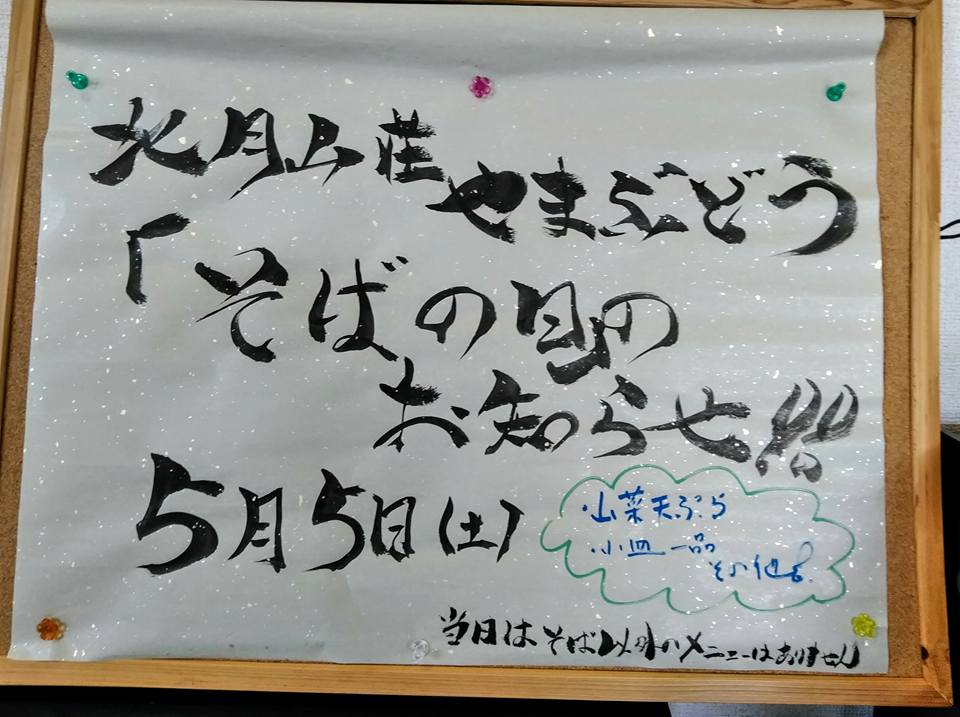 北月山荘
やまぶどう
「そばの日の
お知らせ!!!
5月5日(土)
山菜天ぷら
小皿一品
その他も
当日はそば以外のメニューはありません